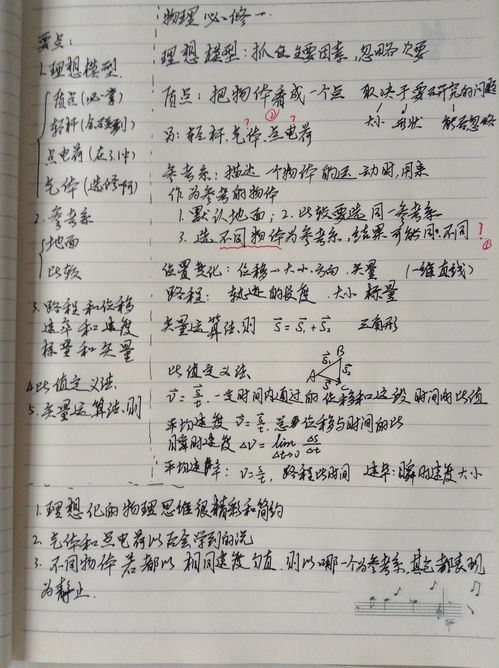 物理必修一
要点：
1.理想模型
质点(必一章)
轻杆(会受到)
点电荷(在3.1中)
气体(选修阿)
2.参考系
地面
比较
3.路程和位移
速率和速度
标量和矢量
4.比值定义法
5.矢量运算法则
理想模型：抓住主要因素，忽略次要
质点：把物体看成一个点 取决于要研究的问题
大小 形状 能否忽略
另：轻杆.气体.点电荷
? ② ?
参考系：描述一个物体的运动时，用来
作为参考的物体
1.默认地面；2.比较要选同一参考系
3.选不同物体为参考系，结果可能同or不同 ?
位置变化：位移→大小.方向.矢量 (一维直线)
路程：轨迹的长度.大小 标量
矢量运算法则 S=S₁+S₂ 三角形
A B C S₁ S₂ S
比值定义法
v=s/t.一定时间内通过的位移和这段时间的比值
平均速度 v=s/t.总位移与时间的比
瞬时速度 ΔV=lim Δt→0 Δs/Δt
平均速率：v=s/t，路程比时间 速率：瞬时速度大小
1.理想化的物理思维很精彩和简约
2.气体和点电荷以后会学到的说
3.不同物体若都以相同速度匀直.则以哪一个为参考系.其它都表现
为静止.